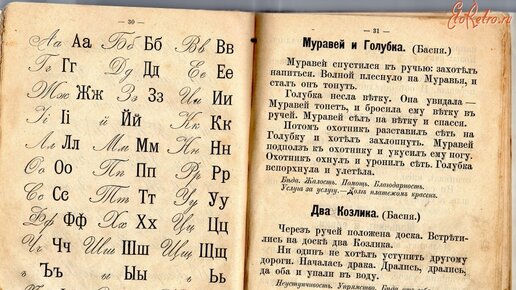 — 30 —
Аа Аа Бб Бб Вв Вв
Гг Гг Дд Дд Ее Ее
Жж Жж Зз Зз Ии Ии
Іі Іі й Йй Кк Кк
Лл Лл Мм Мм Нн Нн
Оо Оо Пп Пп Рр Рр
Сс Сс Тт Тт Уу Уу
Фф Фф Хх Хх Цц Цц
Чч Чч Шш Шш Щщ Щщ
ъ Ъъ ы Ыы ь Ьь
— 31 —
Муравей и Голубка. (Басня.)
Муравей спустился къ ручью: захотѣлъ
напиться. Волной плеснуло на Муравья, и
сталъ онъ тонуть.
Голубка несла вѣтку. Она увидала—
Муравей тонетъ, и бросила ему вѣтку въ
ручей. Муравей сѣлъ на вѣтку и спасся.
Потомъ охотникъ разставилъ сѣть на
Голубку и хотѣлъ захлопнуть. Муравей
подползъ къ охотнику и укусилъ ему ногу.
Охотникъ охнулъ и уронилъ сѣть. Голубка
вспорхнула и улетѣла.
Бѣда. Жалость. Помощь. Благодарность.
Услуга за услугу.—Долгъ платежомъ красенъ.
Два Козлика. (Басня.)
Черезъ ручей положена доска. Встрѣти-
лись на доскѣ два Козлика.
Ни одинъ не хотѣлъ уступить другому
дороги. Началась драка. Дрались, дрались,
да оба и упали въ воду.
Неуступчивость. Упрямство.
EtoRetro.ru